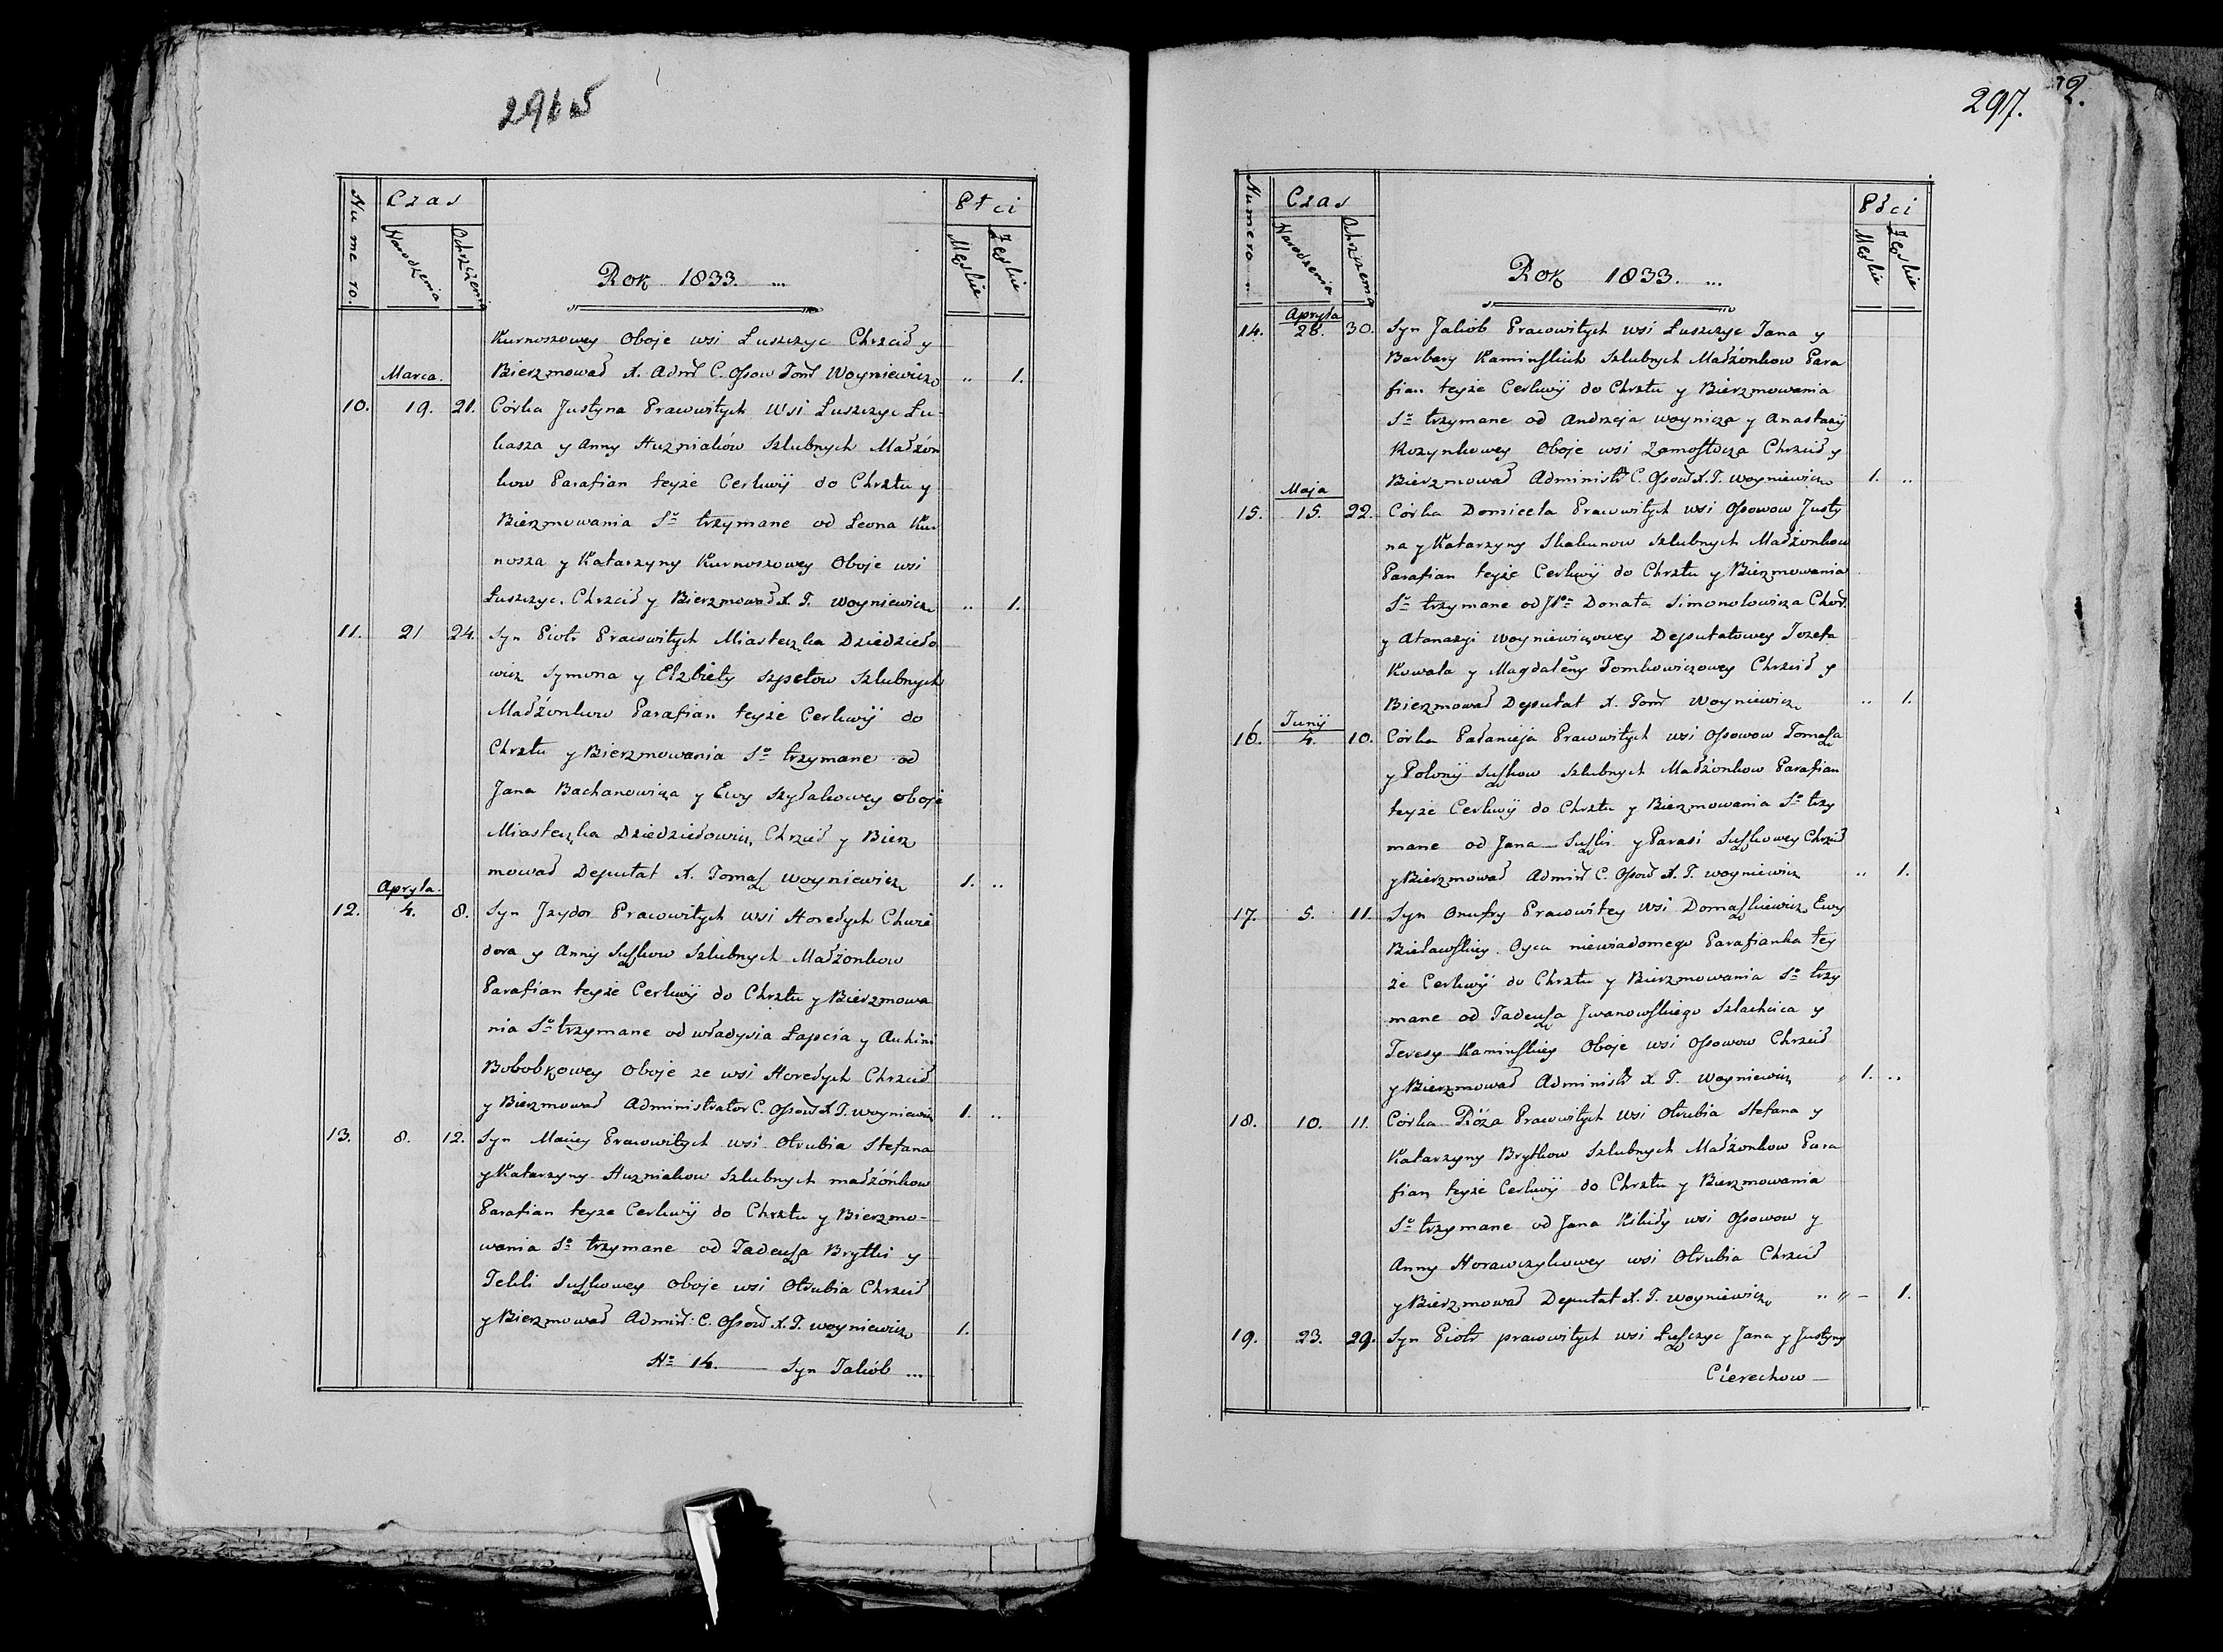 296 об
Numero.
Czas
Narodzenia
Ochrzczenia
Rok 1833. ...
Płci
Męskie
Żeskie
Kurnoszowey Oboje wsi Łuszczyc Chrzcił y
Marca.
Bierzmował X. Admł C. Ossow Tomł Woyniewicz „ 1.
10. 19. 21. Córka Justyna Pracowitych Wsi Łuszczyc Łu-
kasza y Anny Huzniaków Szlubnych Małżon
kow Parafian teyże Cerkwij do Chrztu y
Bierzmowania Sº trzymane od Leona Kur
nosza y Katarzyny Kurnoszowey Oboje wsi
Łuszczyc. Chrzcił y Bierzmował X. T. Woyniewicz „ 1.
11. 21 24. Syn Piotr Pracowitych Miasteczka Dziedziło
wicz Symona y Elżbiety Szpetow Szlubnych
Małżonkow Parafian teyże Cerkwij do
Chrztu y Bierzmowania Sº trzymane od
Jana Bachanowicza y Ewy Szyłakowey oboje
Miasteczka Dziedziłowicz, Chrzcił y Bierz
mował Deputat X. Tomasz Woyniewicz 1. ..
Apryla.
12. 4. 8. Syn Jzydor Pracowitych wsi Horełych Chwie
dora y Anny Suszkow Szlubnych Małżonkow
Parafian teyże Cerkwij do Chrztu y Bierzmowa
nia Sº trzymane od władysia Łapcia y Auhini
Bobobkowey Oboje ze wsi Horełych Chrzcił
y Bierzmował Administrator C. Ossow X. T. Woyniewicz 1. ..
13. 8. 12. Syn Maciey Pracowitych wsi Otrubia Stefana
y Katarzyny Huzniakow Szlubnych małżónkow
Parafian teyze Cerkwij do Chrztu y Bierzmo-
wania Sº trzymane od Tadeusza Brytki y
Tekli Suszkowey Oboje wsi Otrubia Chrzcił
y Bierzmował Admł: C. Ossow X. T. Woyniewicz 1.
Nº 14. Syn Jakób ...
297. 2.
Numero
Czas
Narodzenia
Ochrzczenia
Rok 1833. ...
Płci
Męskie
Żeskie
Apryla
14. 28. 30. Syn Jakób Pracowitych wsi Łuszczyc Jana y
Barbary Kamińskich Szlubnych Małżonkow Para
fian teyże Cerkwij do Chrztu y Bierzmowania
Sº trzymane od Andrzeja woynicza y Anastazij
Kozynkowey Oboje wsi Zamostocza Chrzcił y
Bierzmował Administr C. Ossow X. T. Woyniewicz 1. ..
Maja
15. 15. 22. Córka Domicela Pracowitych wsi Ossowow Justy
na y Katarzyny Skakunow Szlubnych Małżonkow
Parafian teyże Cerkwij do Chrztu y Bierzmowania
Sº trzymane od JPº Donata Simonolowicza Chor.
y Atanazyi Woyniewiczowey Deputatowey Jozefa
Kowala y Magdaleny Tomkowiczowey Chrzcił y
Bierzmował Deputat X. Tomł Woyniewicz .. 1.
Junij
16. 4. 10. Córka Pałanieja Pracowitych wsi Ossowow Tomasza
y Polonij Suszkow Szlubnych Małżonkow Parafian
teyże Cerkwij do Chrztu y Bierzmowania Sº trzy
mane od Jana Suszki y Parasi Suszkowey Chrzcił
y Bierzmował Admił C. Ossow X. T. Woyniewicz .. 1.
17. 5. 11. Syn Onufry Pracowitey Wsi Domaszkiewicz Ewy
Bielawskiey Oyca niewiadomego Parafianka tey
że Cerkwij do Chrztu y Bierzmowania Sº trzy
mane od Tadeusza Jwanowskiego Szlachcica y
Teresy Kaminskiey Oboje wsi Ossowow Chrzcił
y Bierzmował Administr X. T. Woyniewicz 1. ..
18. 10. 11. Córka Róża Pracowitych Wsi Otrubia Stefana y
Katarzyny Brytkow Szlubnych Małżonkow Para
fian teyże Cerkwij do Chrztu y Bierzmowania
Sº trzymane od Jana Kikiły wsi Ossowow y
Anny Horawczykowey wsi Otrubia Chrzcił
y Bierzmował Deputat X. T. Woyniewicz .. „ - 1.
19. 23. 29. Syn Piotr pracowitych wsi Łuszczyc Jana y Justyny
Cierechow